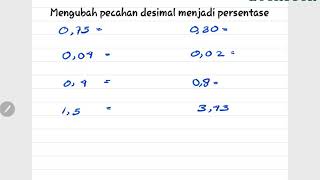 Mengubah pecahan desimal menjadi persentase
0,75 = 0,30 =
0,09 = 0,02 =
0,4 = 0,8 =
1,5 = 3,43